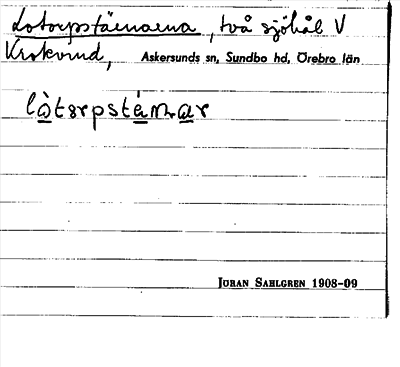 Lotorpstärnarna, två sjöhål V
Krokvind, Askersunds sn, Sundbo hd, Örebro län
lòtorpstá̱rnar
JÖRAN SAHLGREN 1908-09